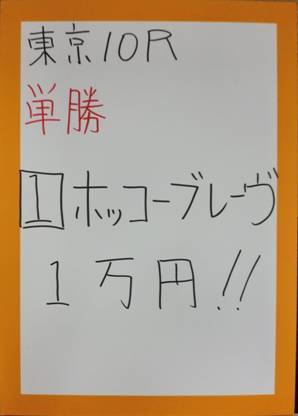 東京10R
単勝
1ホッコーブレーヴ
1万円!!